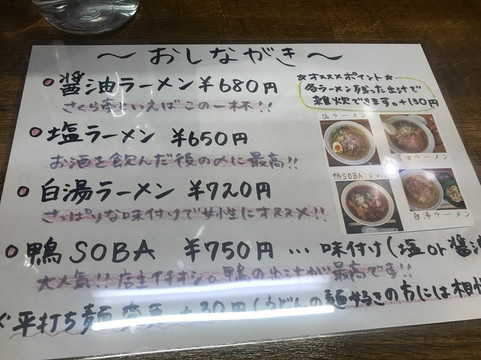 〜おしながき〜
醤油ラーメン ¥680円
さくら庵といえばこの一杯!!
塩ラーメン ¥650円
お酒を飲んだ後の〆に最高!!
白湯ラーメン ¥720円
さっぱりな味付けで女性にオススメ!!
鴨SOBA ¥750円 … 味付け(塩or醤油
大人気!!店主イチオシ。鴨の出汁が最高です!!
平打ち麺 +30円(うどんの麺
の方には相
☆オススメポイント☆
各ラーメン残った出汁で
雑炊できます。+130円
塩ラーメン
醤油ラーメン
鴨SOBA
白湯ラーメン